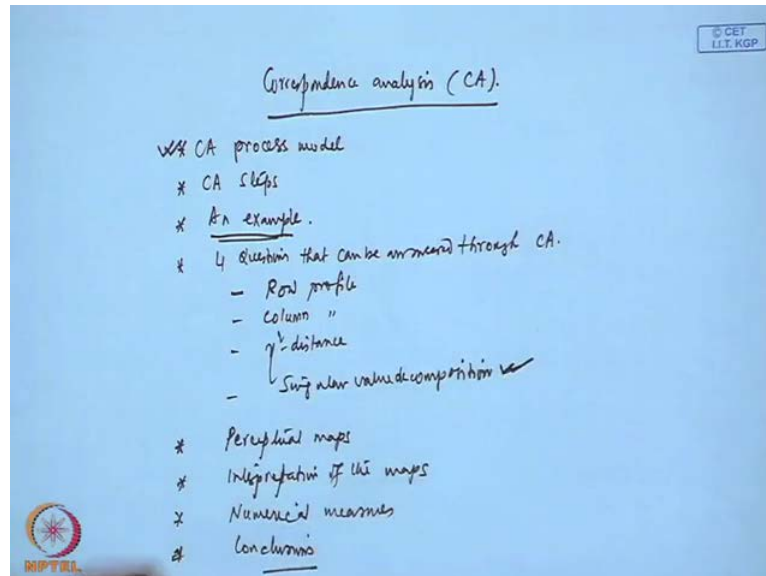 © CET
I.I.T. KGP
Correspondence analysis (CA).
* CA process model
* CA steps
* An example.
* 4 Question that can be answered through CA.
- Row profile
- Column "
- χ²-distance
- Singular value decomposition ✓
* Perceptual maps
* Interpretation of the maps
* Numerical measures
* Conclusions
NPTEL